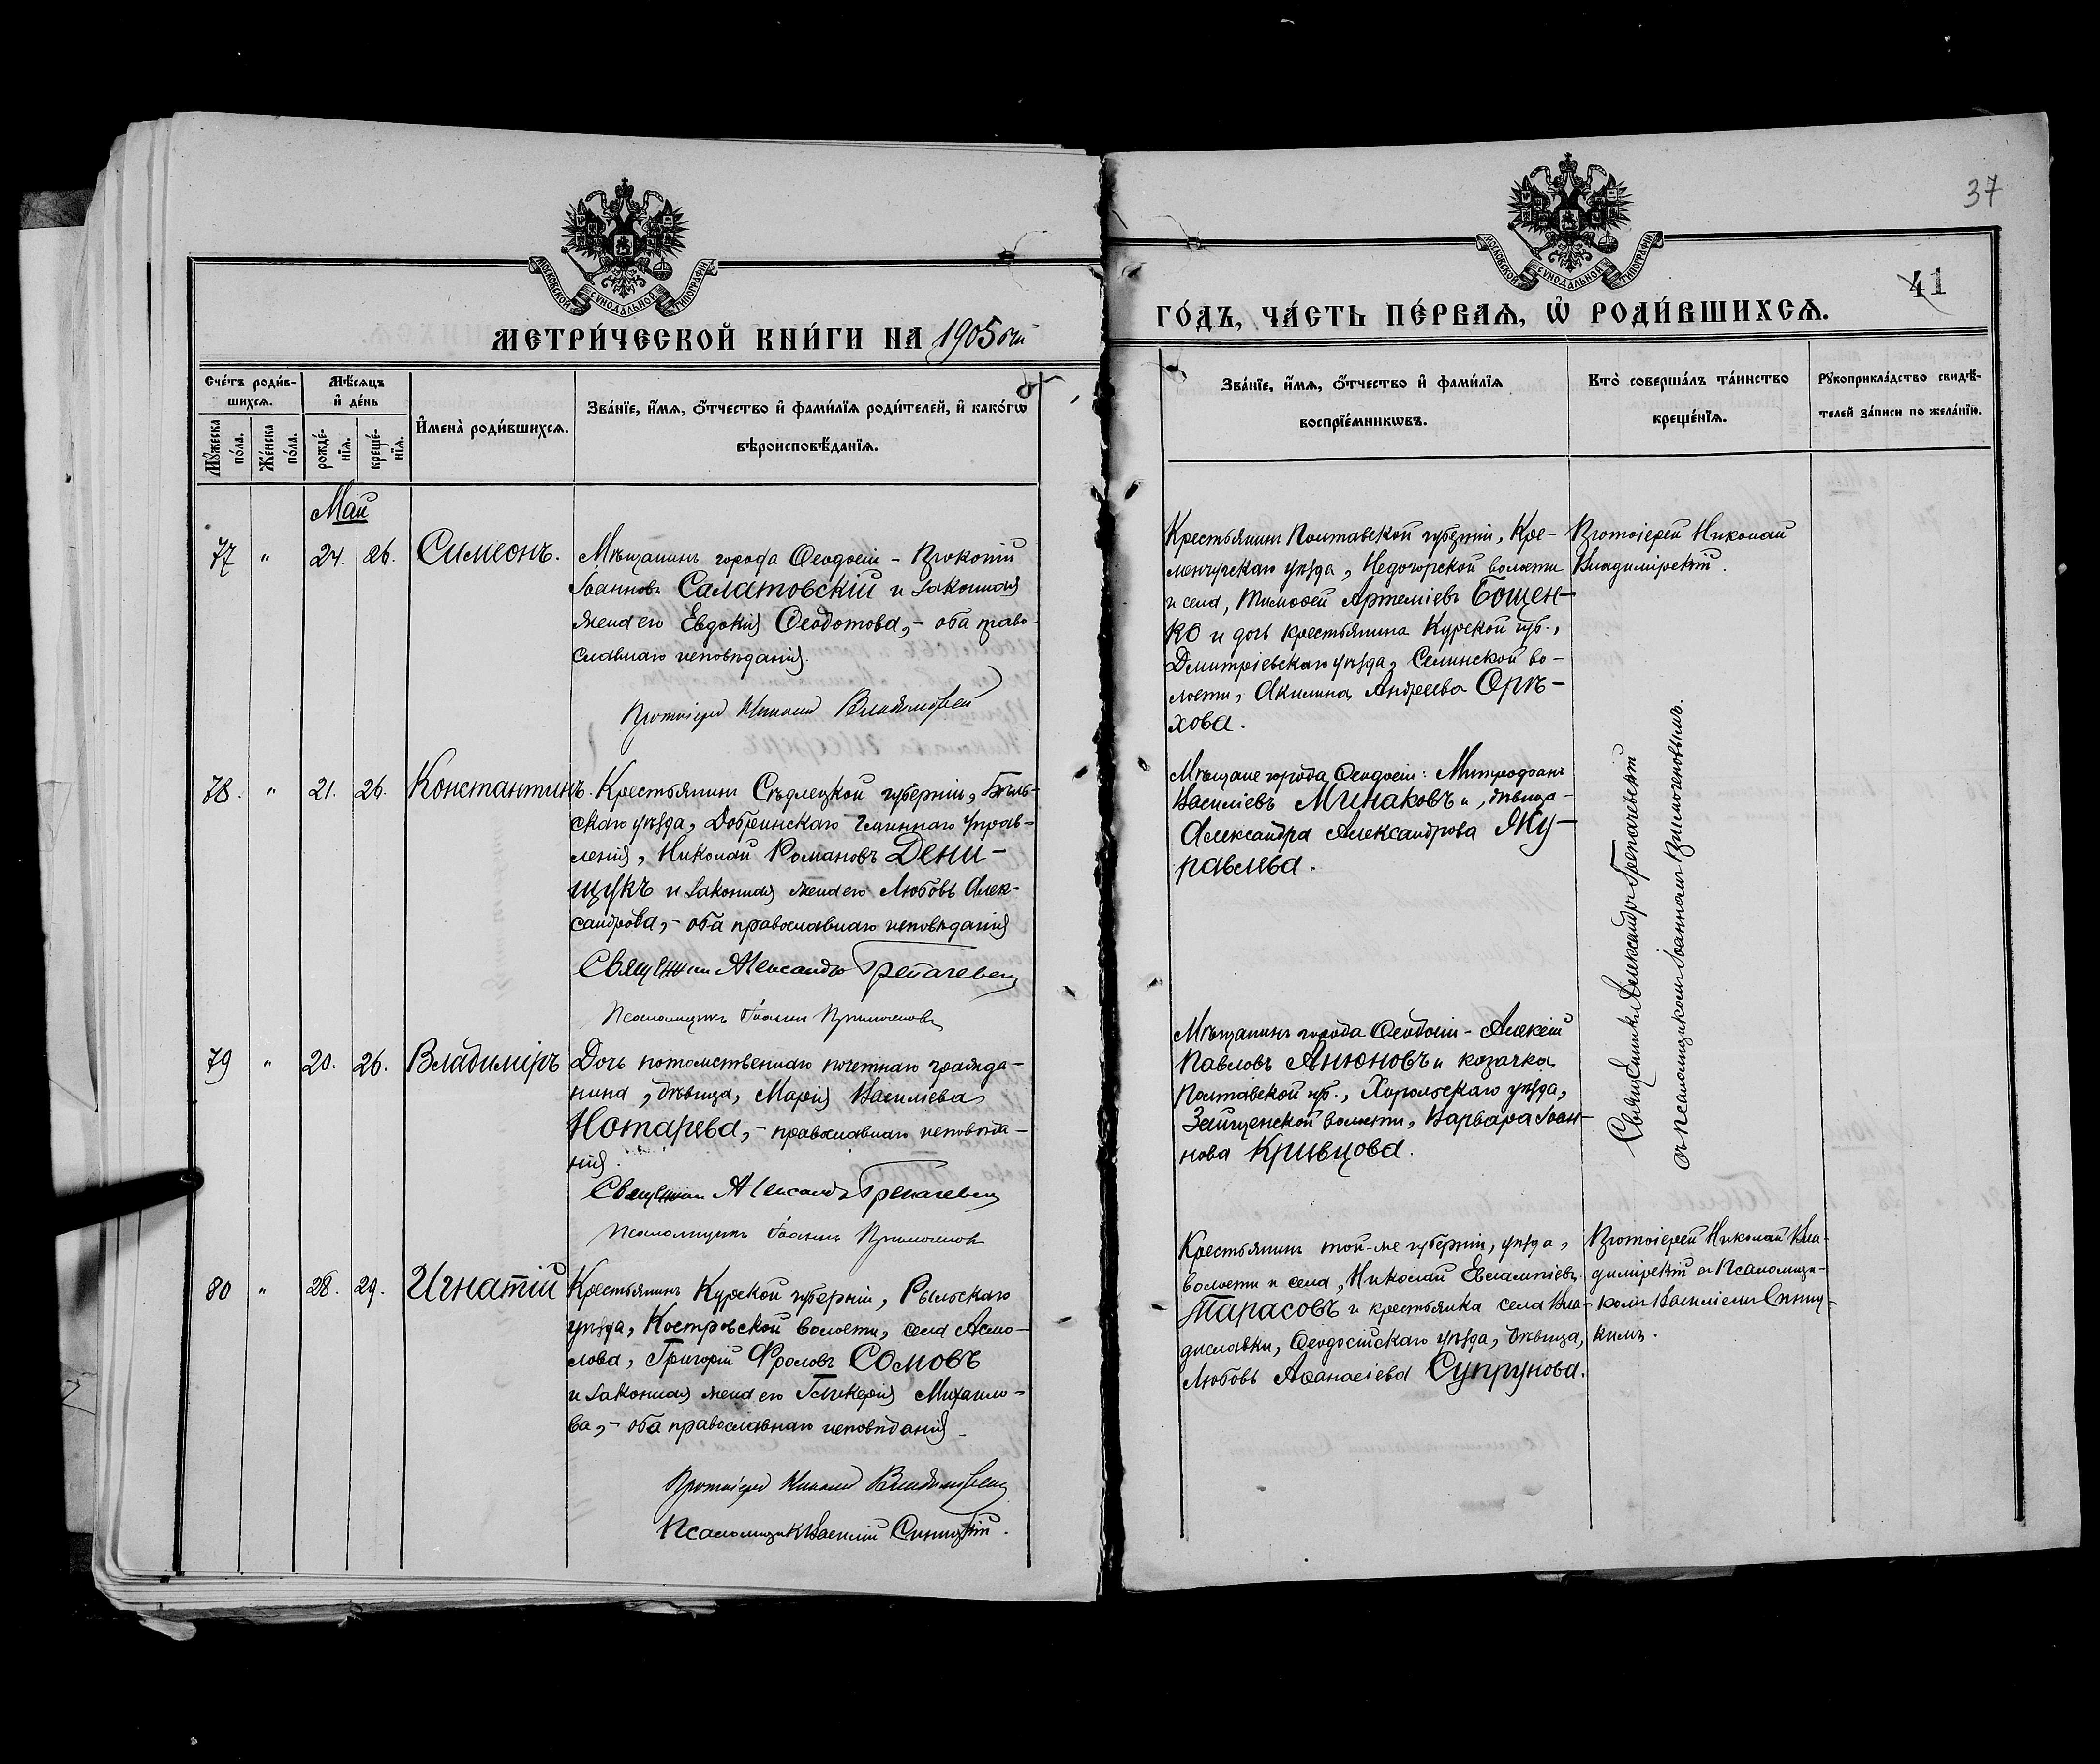 37
МОСКОВСКОЙ СѴНОДАЛЬНОЙ ТИПОГРАФІИ
МОСКОВСКОЙ СѴНОДАЛЬНОЙ ТИПОГРАФІИ
41
МЕТРИ́ЧЕСКОЙ КНИ́ГИ НА 1905 ый
ГО́ДЪ, ЧА́СТЬ ПЕ́РВАѦ, Ѡ҆ РОДИ́ВШИХСѦ.
Сче́тъ роди́в-
шихсѧ.
Мѹ́жеска по́ла.
Же́нска по́ла.
Мѣ́сѧцъ
и҆ де́нь
рожде́-
нїѧ.
креще́-
нїѧ.
И҆мена̀ роди́вшихсѧ.
Зва́нїе, и҆́мѧ, ѻ҆́тчество и҆ фами́лїѧ роди́телей, и҆ како́гѡ
вѣроисповѣ́данїѧ.
Зва́нїе, и҆́мѧ, ѻ҆́тчество и҆ фами́лїѧ
воспрїе́мникѡвъ.
Кто̀ соверша́лъ та́инство
креще́нїѧ.
Рѹкоприкла́дство свидѣ́-
телей за́писи по жела́нїю.
Май
77 " 24. 26. Симеонъ.
Мѣщанинъ города Ѳеодосіи - Прокопій
Іоанновъ Салатовскій и законная
жена его Евдокія Ѳеодотова, - оба право-
славнаго исповѣданія.
Протоіерей Николай Владимірскій
Крестьянинъ Полтавской губерніи, Кре-
менчугскаго уѣзда, Недогорской волости
и села, Тимоѳей Артеміевъ Бощен-
ко и дочь крестьянина Курской губ.,
Дмитріевскаго уѣзда, Селинской во-
лости, Акилина Андреева Орѣ-
хова.
Протоіерей Николай
Владимірскій.
78. " 21. 26. Константинъ.
Крестьянинъ Сѣдлецкой губерніи, Бѣль-
скаго уѣзда, Добринскаго гминнаго управ-
ленія, Николай Романовъ Дени-
щукъ и законная жена его Любовь Алек-
сандрова, - оба православнаго исповѣданія
Священникъ Александръ Грепачевскій
Псаломщикъ Іоаннъ Примоченовъ
Мѣщане города Ѳеодосіи: Митрофанъ
Василіевъ Минаковъ и, дѣвица -
Александра Александрова Жу-
равлева.
Священникъ Александръ Грепачевскій
съ псаломщикомъ Іоанномъ Примоченовымъ.
79 " 20. 26. Владиміръ
Дочь потомственнаго почетнаго гражда-
нина, дѣвица, Марія Василіева
Нотарева, - православнаго исповѣда-
нія.
Священникъ Александръ Грепачевскій
Псаломщикъ Іоаннъ Примоченовъ
Мѣщанинъ города Ѳеодосіи - Алексій
Павловъ Анюновъ и козачка
Полтавской губ., Хорольскаго уѣзда,
волости, Варвара Іоан-
нова Кривцова.
80 " 28. 29. Игнатій
Крестьянинъ Курской губерніи, Рыльскаго
уѣзда, Костровской волости, села Асмо-
лова, Григорій Фроловъ Сомовъ
и законная жена его Гликерія Михаило-
ва, - оба православнаго исповѣданія.
Протоіерей Николай Владимірскій
Псаломщикъ Василій Синицкій.
Крестьянинъ той-же губерніи, уѣзда,
волости и села, Николай Евлампіевъ
Тарасовъ и крестьянка села Вла-
диславки, Ѳеодосійскаго уѣзда, дѣвица,
Любовь Аѳанасіева Супрунова.
Протоіерей Николай Вла-
димірскій съ псаломщи-
комъ Василіемъ Синиц-
кимъ.